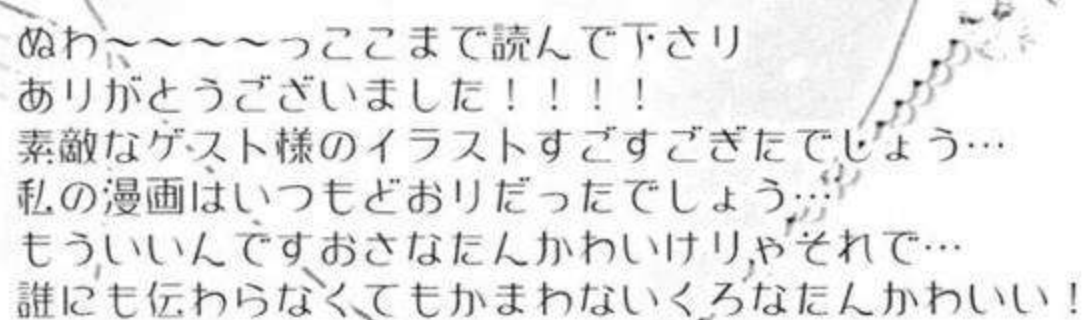 ぬわ~~~~っここまで読んで下さり
ありがとうございました!!!!
素敵なゲスト様のイラストすごすごぎたでしょう…
私の漫画はいつもどおりだったでしょう…
もういいんですおさなたんかわいけりゃそれで…
誰にも伝わらなくてもかまわないくろなたんかわいい!